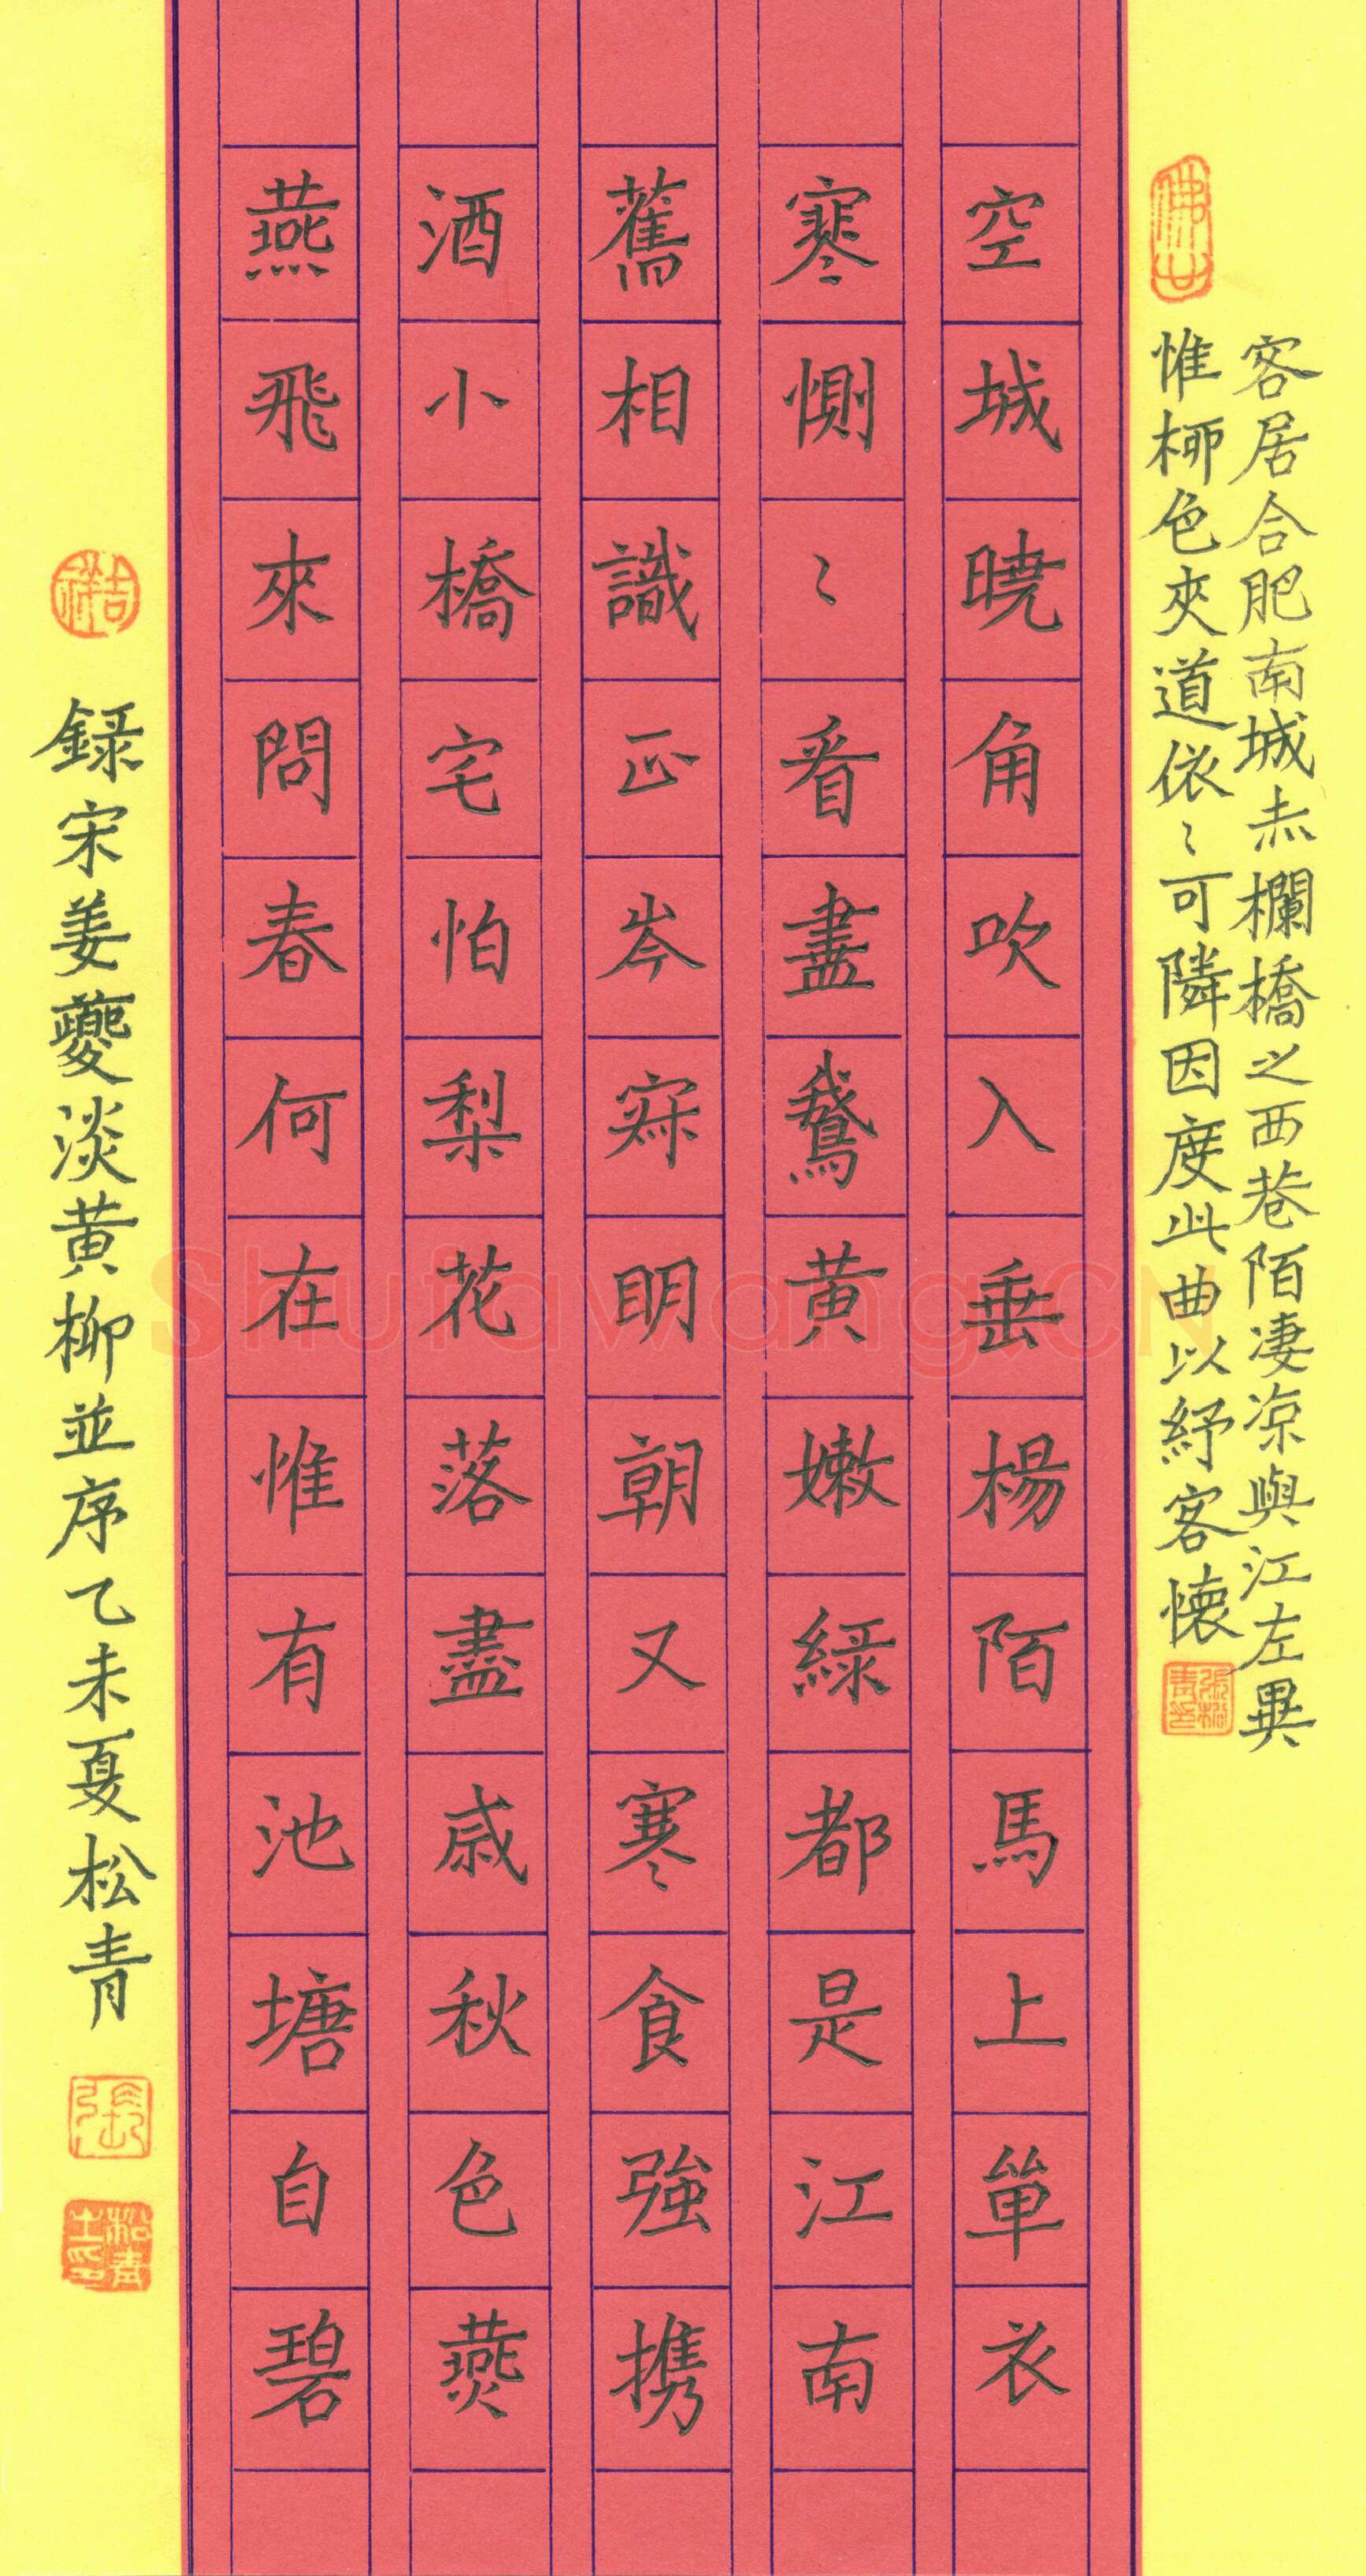 客居合肥南城赤欄橋之西巷陌凄涼與江左異
惟柳色夾道依〻可隣因度此曲以紓客懷
空城曉角吹入垂楊陌馬上單衣
寒惻〻看盡鵞黃嫩綠都是江南
舊相識正岑寂明朝又寒食強攜
酒小橋宅怕梨花落盡成秋色燕
燕飛來問春何在惟有池塘自碧
錄宋姜夔淡黃柳並序乙未夏松青
吉祥
張松青印
張
松青之印
Shufawang.CN